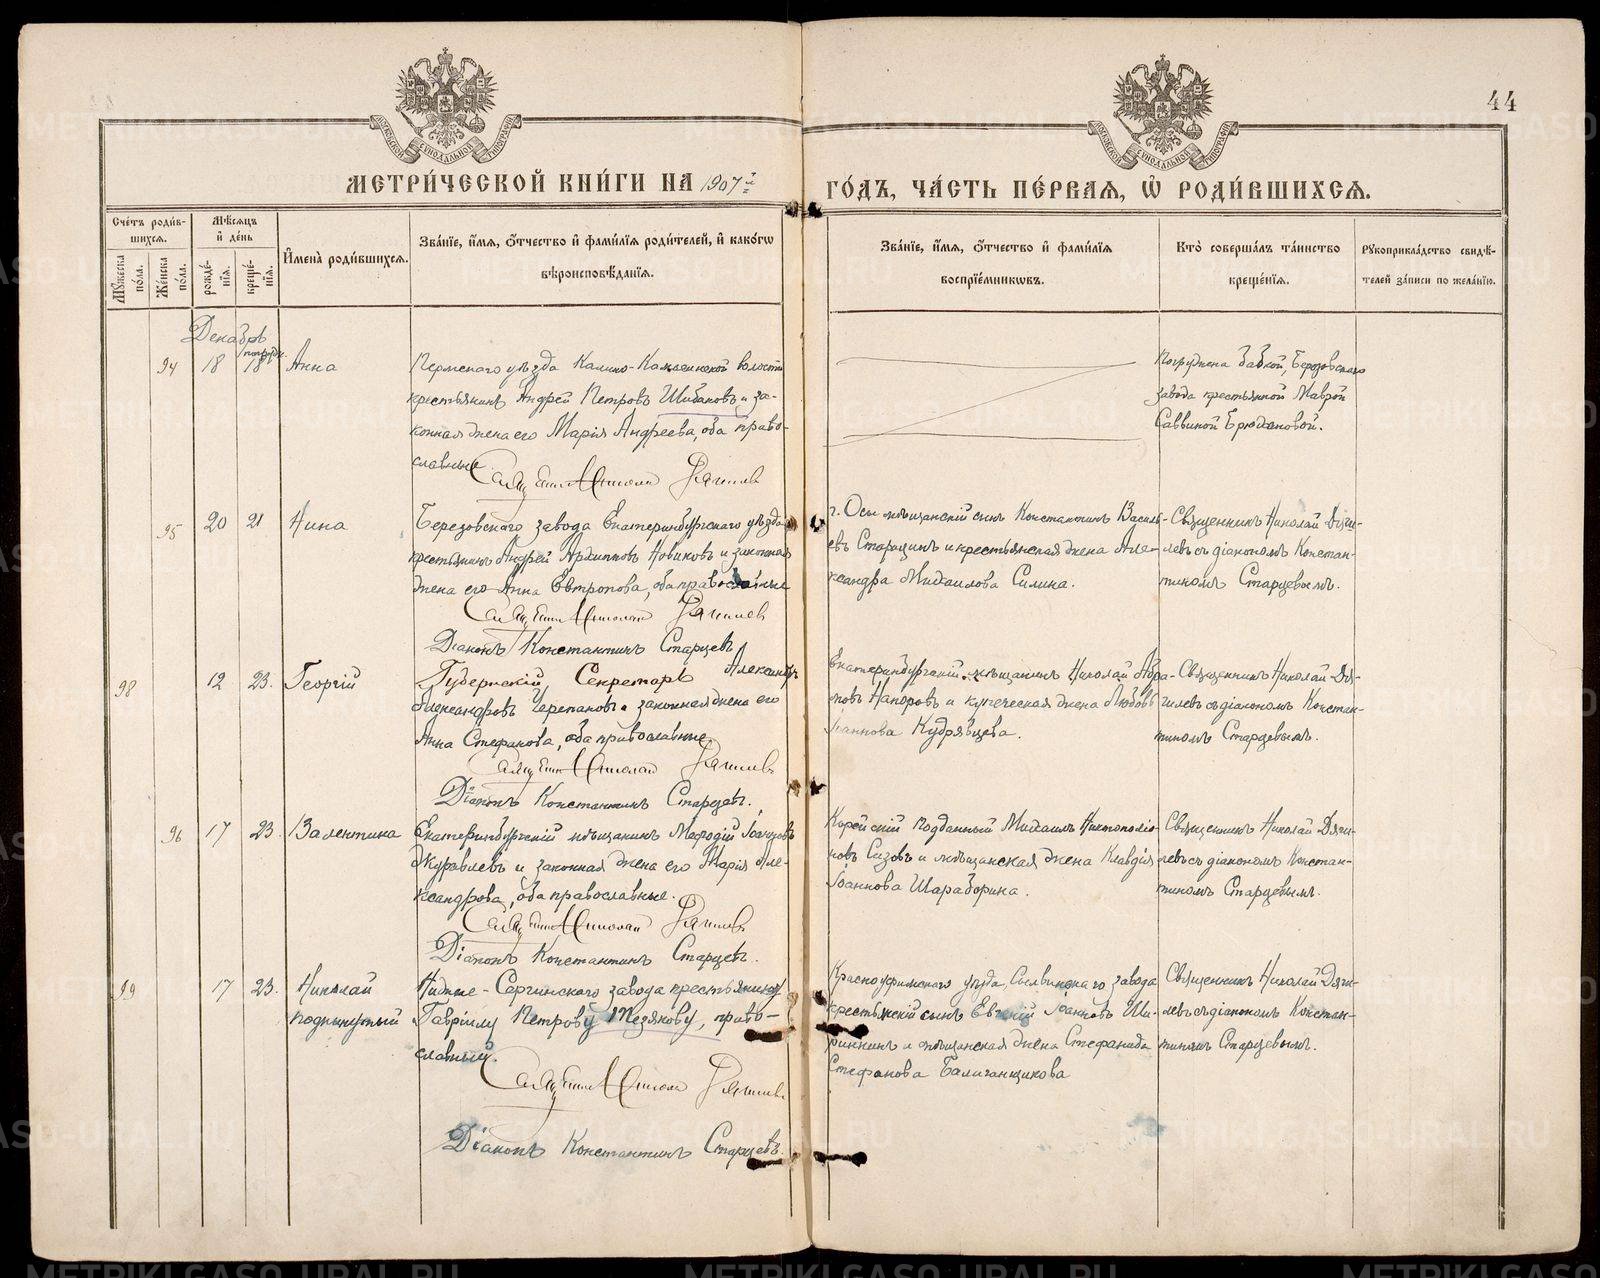 44
МЕТРИЧЕСКОЙ КНИГИ НА 1907й
ГОДЪ, ЧАСТЬ ПЕРВАЯ, Ѡ РОДИВШИХСЯ.
Счетъ родив-
шихся.
Мѣсяцъ
и день
Имена родившихся.
Званїе, имя, отчество и фамилїя родителей, и какогѡ
вѣроисповѣданїя.
Мужеска пола.
Женска пола.
рожденїя.
крещенїя.
Званїе, имя, отчество и фамилїя
воспрїемникѡвъ.
Кто совершалъ таинство
крещенїя.
Рукоприкладство свидѣ-
телей записи по желанїю.
Декабрь
94 18 18 Анна
Пермскаго уѣзда волости
крестьянинъ Андрей Петровъ Шибановъ и за-
конная жена его Марія Андреева, оба право-
славные.
Николай
Погружена бабкой, Березовскаго
завода крестьянкой Маврой
Саввиной Брюхановой.
95 20 21 Нина
Березовскаго завода Екатеринбургскаго уѣзда
крестьянинъ Андрей Архиповъ Новиковъ и законная
жена его Анна Евтропова, оба православные
Николай
Діаконъ Константинъ Старцевъ
г. Осы мѣщанскій сынъ Константинъ Василь-
евъ Старцинъ и крестьянская жена Але-
ксандра Михаилова Силина.
Священникъ Николай Дяги-
левъ съ діакономъ Констан-
тиномъ Старцевымъ.
98 12 23. Георгій
Губернскій Секретарь Александръ
Александровъ Черепановъ и законная жена его
Анна Стефанова, оба православные.
Николай
Діаконъ Константинъ Старцевъ.
Екатеринбургскій мѣщанинъ Николай Абра-
мовъ Напоровъ и купеческая жена Любовь
Іоаннова Кудрявцева.
Священникъ Николай Дя-
гилевъ съ діакономъ Констан-
тиномъ Старцевымъ.
96 17 23. Валентина
Екатеринбургскій мѣщанинъ Меѳодій
Журавлевъ и законная жена его Марія Але-
ксандрова, оба православные.
Николай
Діаконъ Константинъ Старцевъ.
подданный Михаилъ
новъ Сизовъ и мѣщанская жена Клавдія
Іоаннова Шараборина.
Священникъ Николай Дяги-
левъ съ діакономъ Констан-
тиномъ Старцевымъ.
99 17 23. Николай
подкинутый
Нижне-Сергинскаго завода крестьянину
Гавріилу Петрову Мезякову, право-
славный.
Діаконъ Константинъ Старцевъ.
Красноуфимскаго уѣзда, Сылвинскаго завода
крестьянскій сынъ Евгеній Іоанновъ Ши-
ринкинъ и мѣщанская жена Стефанида
Стефанова Балаганщикова
Священникъ Николай Дяги-
левъ съ діакономъ Констан-
тиномъ Старцевымъ.
METRIKI.GASO-URAL.RU